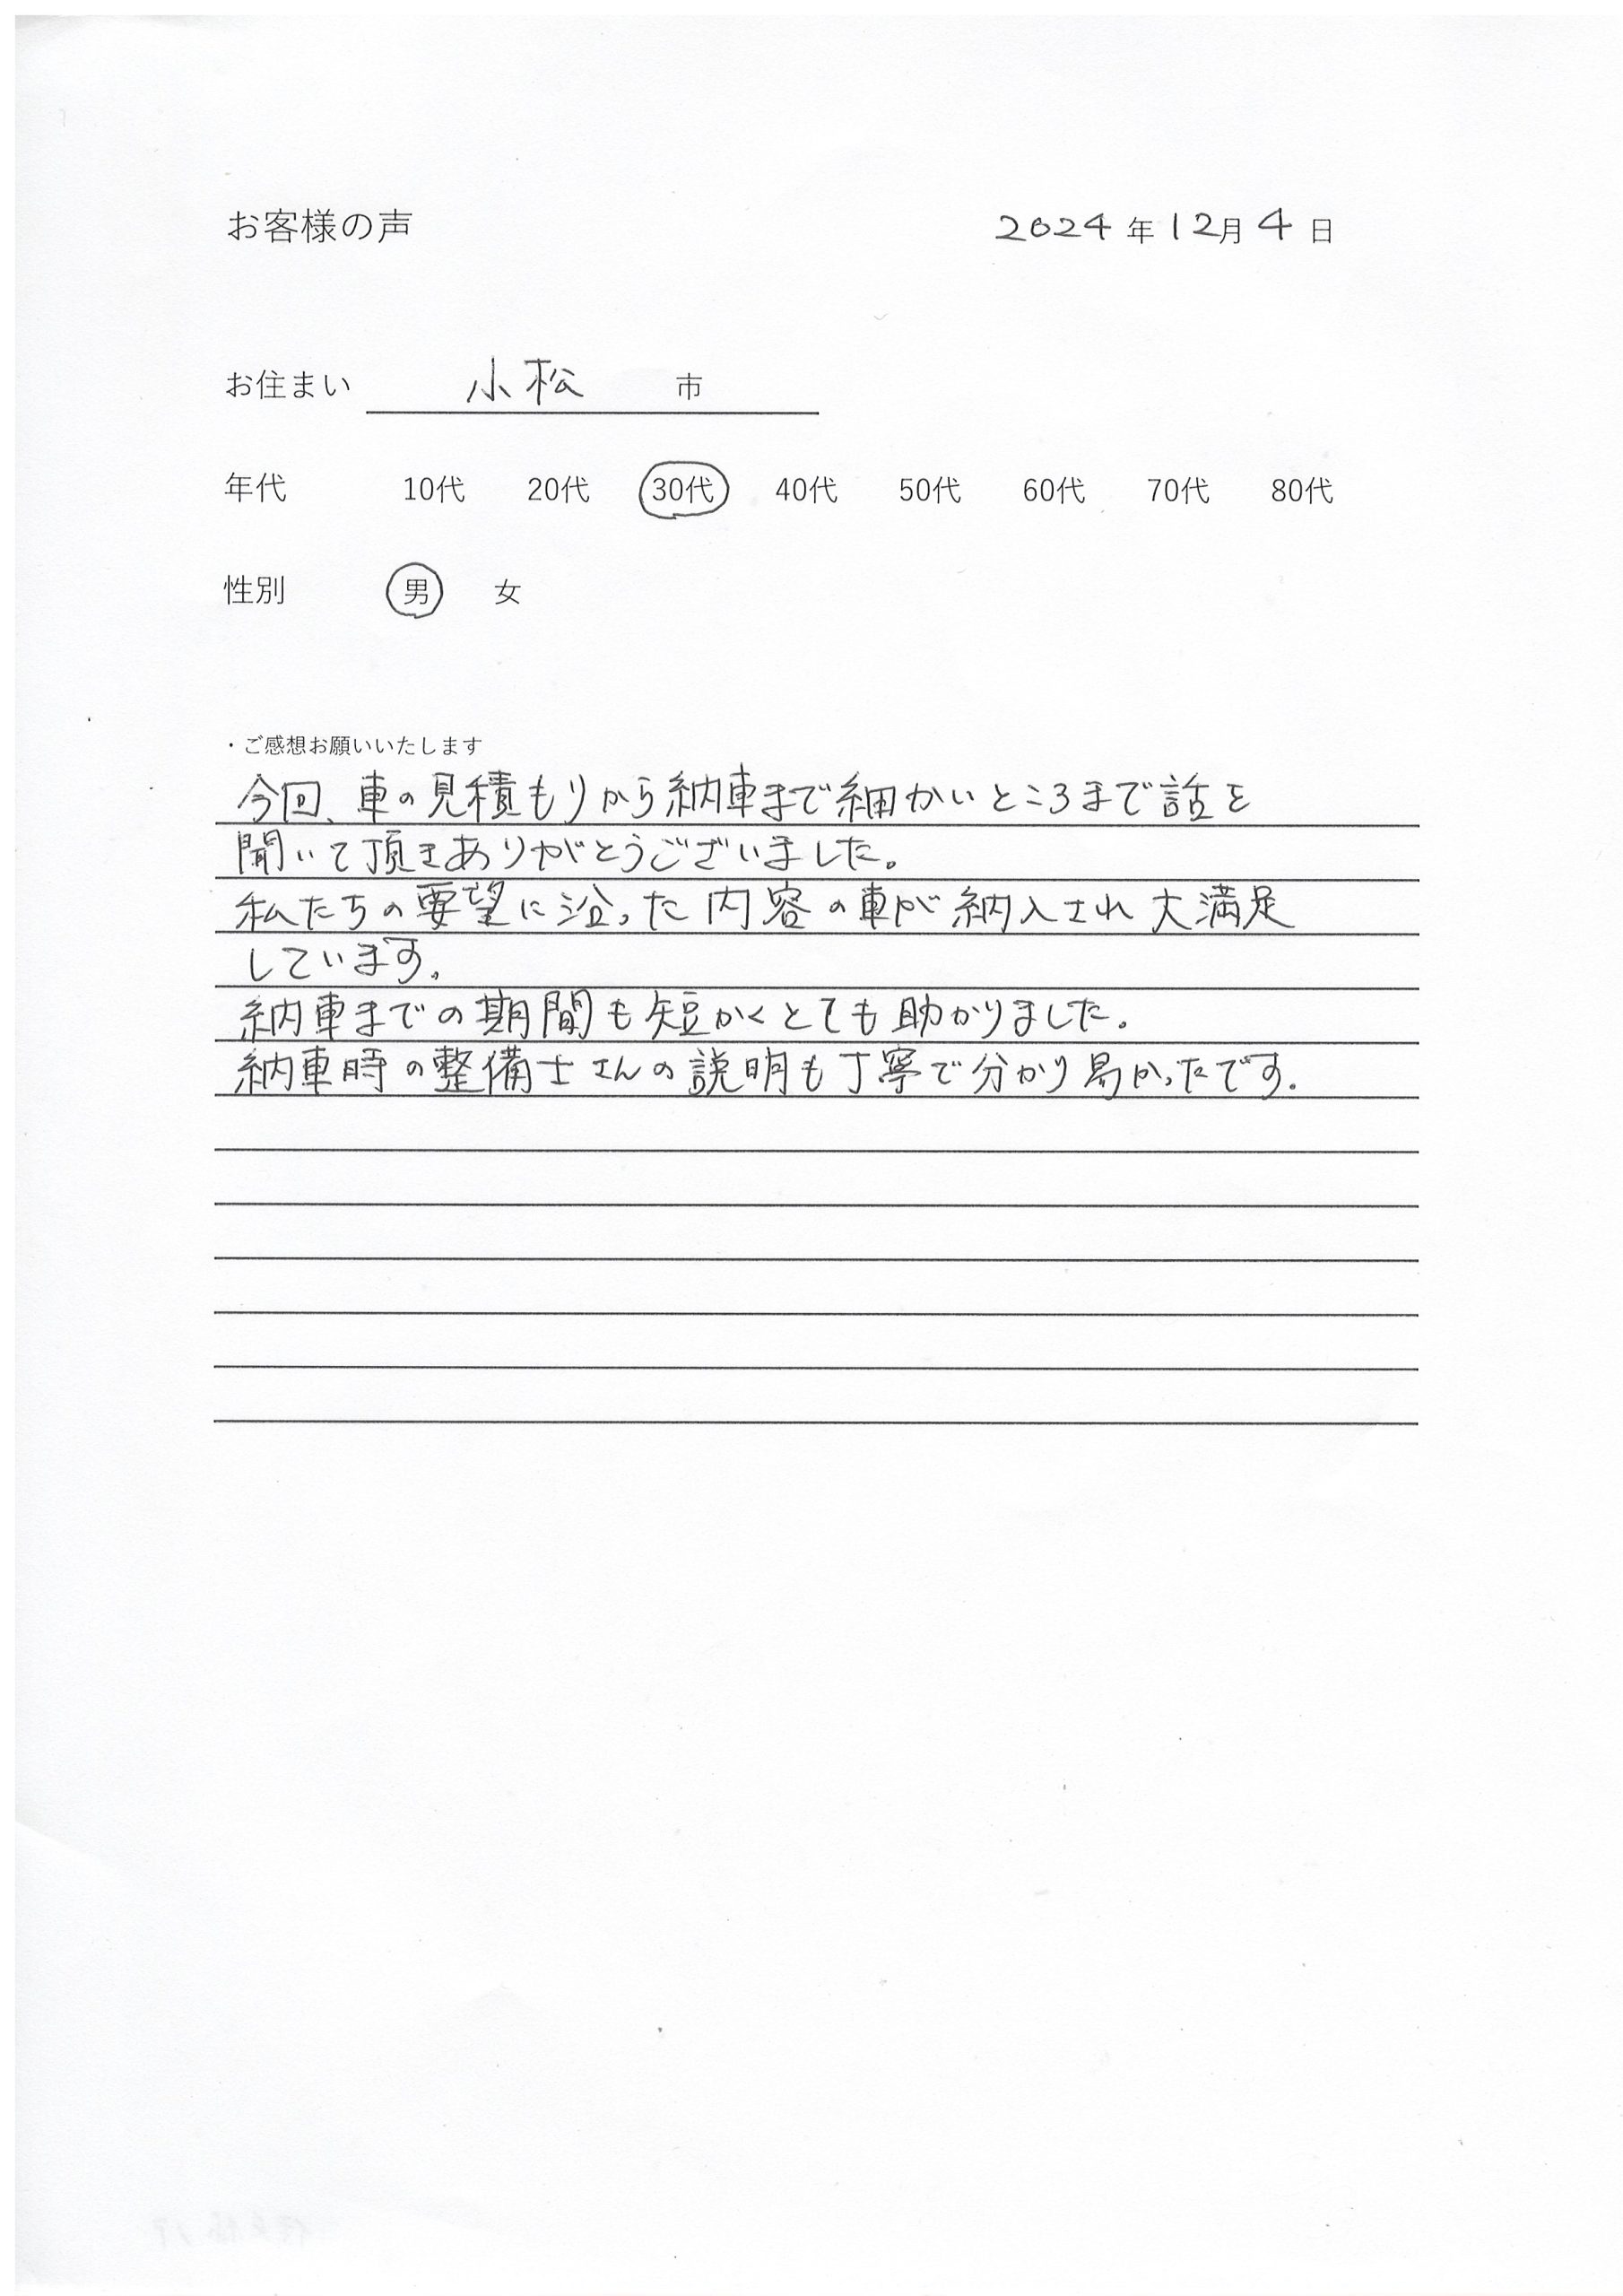 お客様の声 2024年12月4日
お住まい 小松 市
年代 10代 20代 30代 40代 50代 60代 70代 80代
性別 男 女
・ご感想お願いいたします
今回、車の見積もりから納車まで細かいところまで話を
聞いて頂きありがとうございました。
私たちの要望に沿った内容の車が納入され大満足
しています。
納車までの期間も短かくとても助かりました。
納車時の整備士さんの説明も丁寧で分かり易かったです。